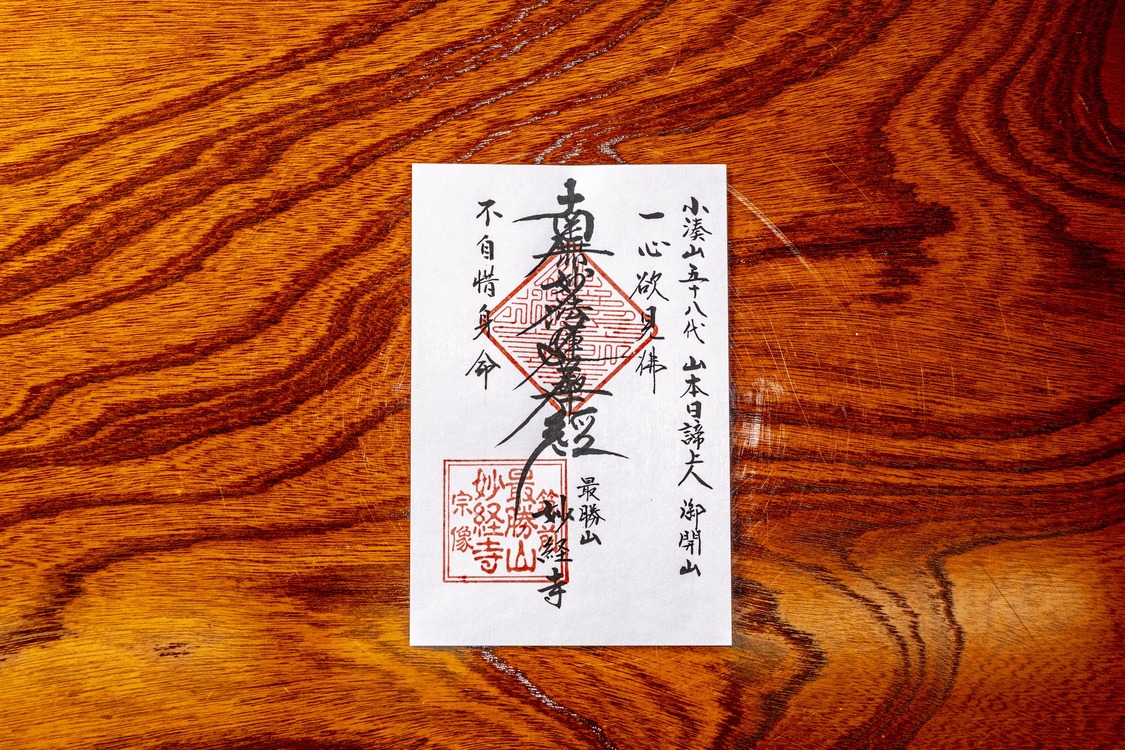 小湊山五十八代 山本日諦上人 御開山
一心欲見佛
南無妙法蓮華經
不自惜身命
最勝山
妙経寺
筑前
最勝山
妙経寺
宗像